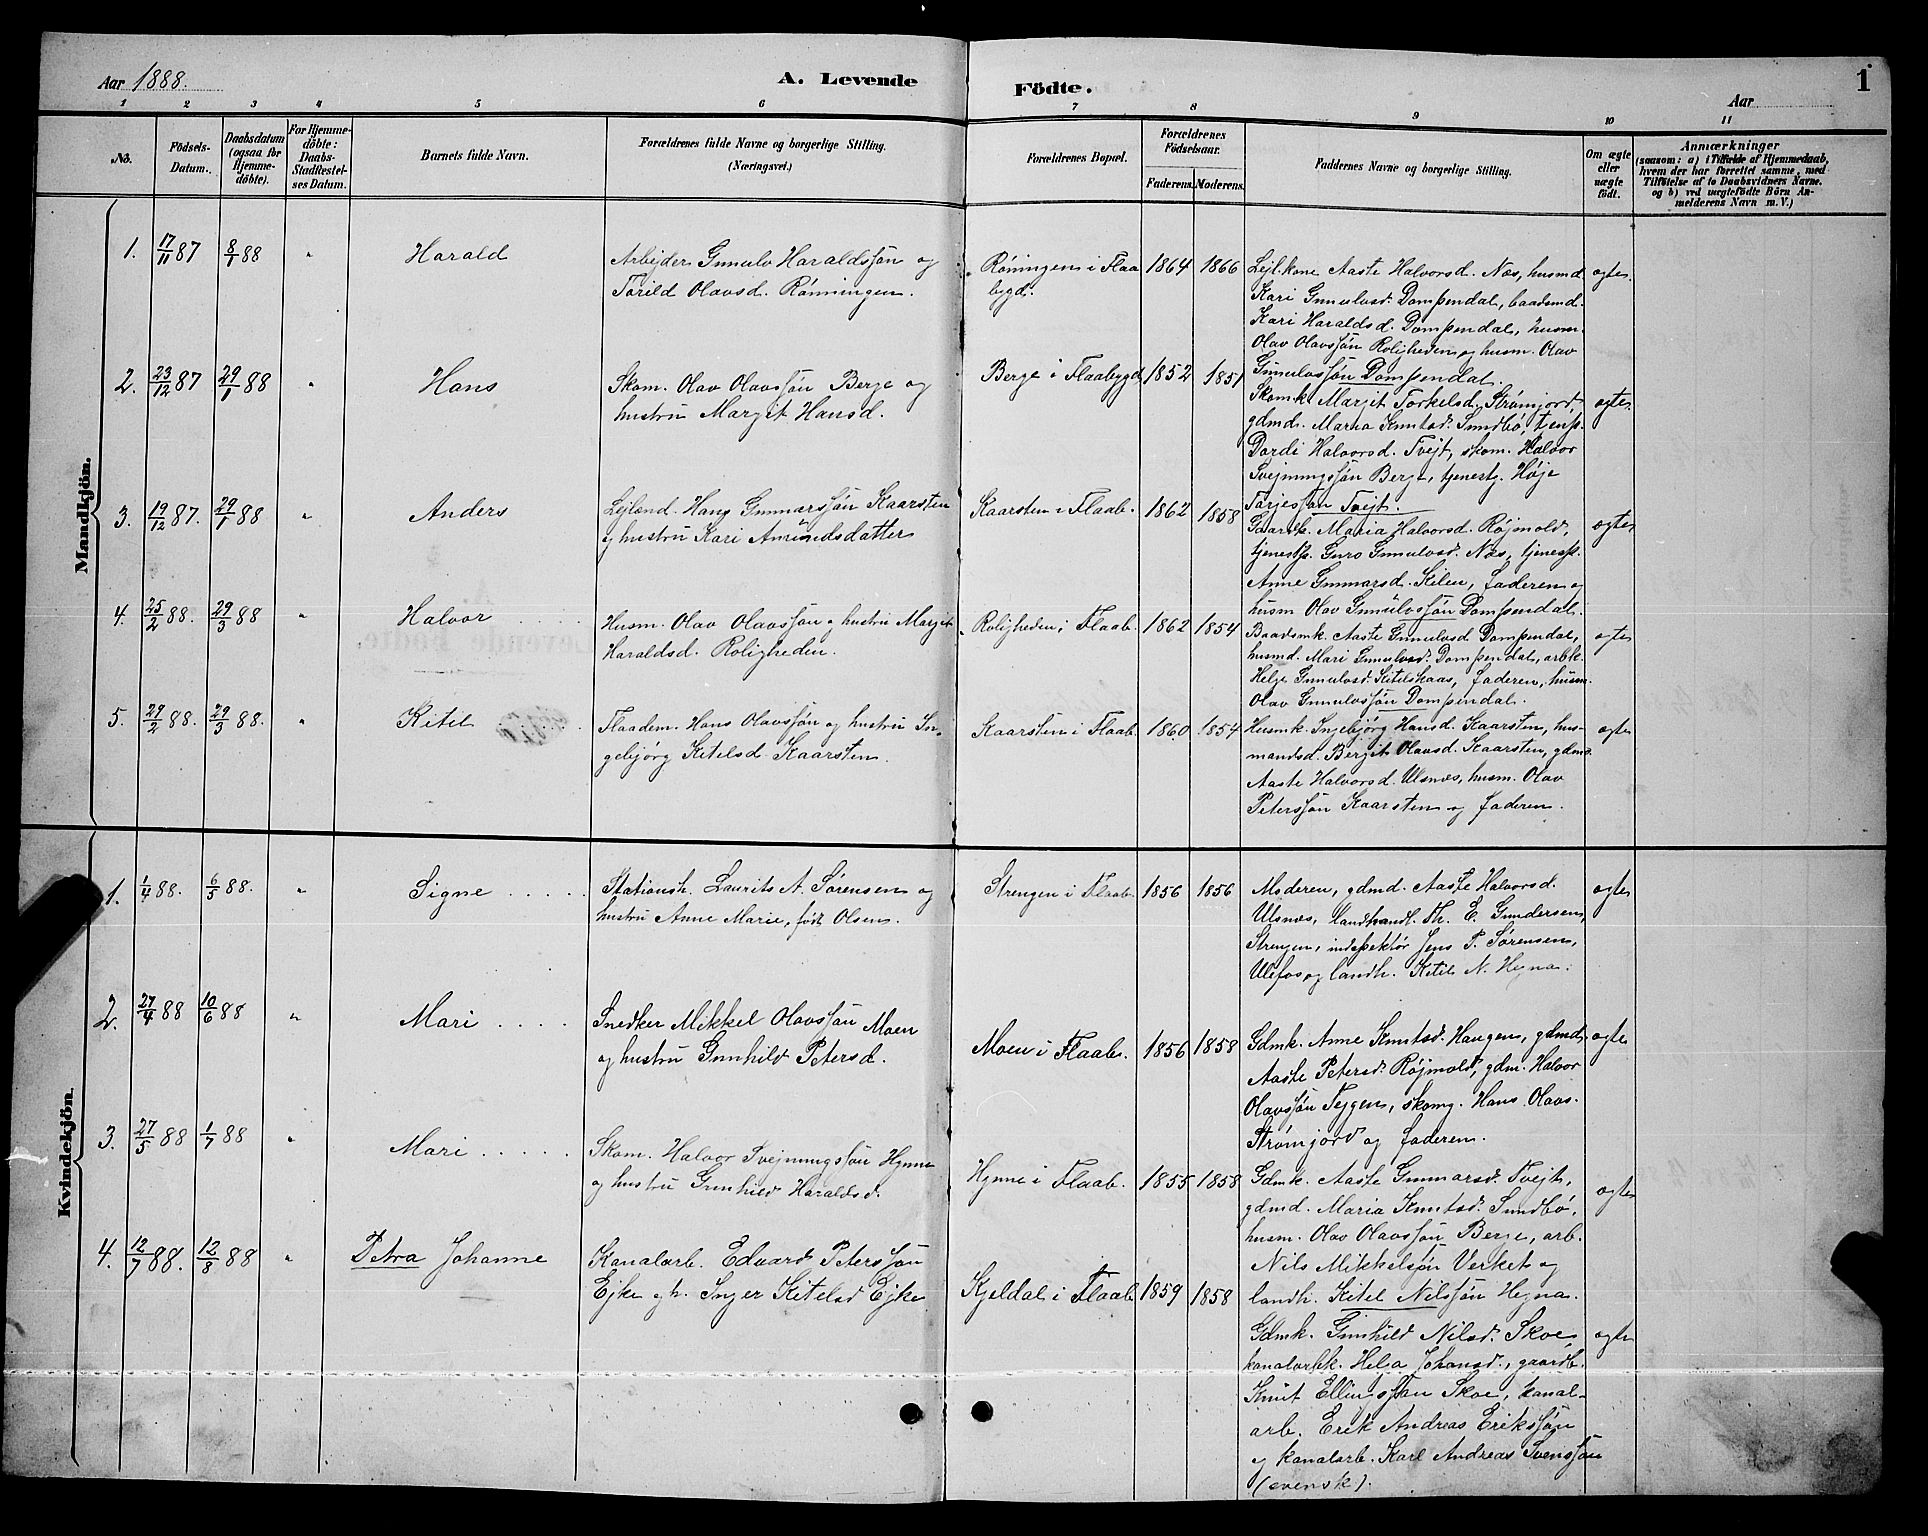 Aar 1888.
A. Levende
Födte.
Aar
1
1 2 3 4 5 6 7 8 9 10 11
No.
Födsels-
Datum.
Daabsdatum
(ogsaa for
Hjemme-
döbte).
For Hjemme-
döbte:
Daabs-
Stadfæstel-
ses Datum.
Barnets fulde Navn.
Forældrenes fulde Navne og borgerlige Stilling.
(Næringsvei.)
Forældrenes Bopæl.
Forældrenes
Födselsaar.
Faderens. Moderens.
Faddernes Navne og borgerlige Stilling.
Om ægte
eller
uægte
födt.
Anmærkninger
(saasom: a) i Tilfælde af Hjemmedaab,
hvem der har forrettet samme, med
Tilföielse af to Daabsvidners Navne,
og b) ved uægtefödte Börn An-
melderens Navn m. V.)
Mandkjön.
1. 17/11 87 8/1 88 " Harald
Arbejder Gunulv Haraldssøn og
Torild Olavsd. Rønningen.
Røningen i Flaa
bygd.
1864 1866
Lejl.kone Aaste Halvorsd. Næs, husmd.
Kari Gunulvsd. Dompendal, baadsmd.
Kari Haraldsd. Dompendal, husm.
Olav Olavssøn Roligheden og husm. Olav
Gunulvssøn Dompendal.
ægte.
2. 23/12 87 29/1 88 " Hans
Skom. Olav Olavssøn Berge og
hustru Margit Hansd.
Berge i Flaabygd
1852 1851
Skomk. Margit Torkelsd. Strømjord,
gdmd. Maria Knutsd. Sundbø, tjenp.
Dordi Halvorsd. Tvejt, skom. Halvor
Svejnungssøn Berge, tjenestg. Høje
Tarjessøn Tvejt.
ægte.
3. 19/12 87. 29/1 88 " Anders
Lejlænd. Hans Gunnarssøn Kaarsten
og hustru Kari Amundsdatter
Kaarsten i Flaab.
1862 1858
Gaardk. Maria Halvorsd. Røjmold,
tjenestp. Guro Gunulvsd. Næs, tjenestp.
Anne Gunnarsd. Kilen, faderen og
husm Olav Gunulvssøn Dompendal.
ægte
4. 25/2 88. 29/3 88 " Halvor
Husm. Olav Olavssøn og hustru Margit
Haraldsd. Roligheden.
Roligheden i Flaab.
1862 1854
Baadsmk. Aaste Gunulvsd Dompendal,
husmd. Mari Gunulvsd. Dompendal, arbk.
Helge Gunulvsd. Kitelskaas, faderen, husm.
Olav Gunulvssøn Dompendal.
ægte
5. 29/2 88. 29/3 88. " Kitil
Flaadem. Hans Olavssøn og hustru In-
gebjørg Kitelsd. Kaarsten.
Kaarsten i Flaab.
1860 1854
Husmk. Ingebjørg Hansd. Kaarsten, hus-
mandsd. Bergit Olavsd. Kaarsten, gdmd.
Aaste Halvorsd. Ulsnæs, husm. Olav
Peterssøn Kaarsten og faderen.
ægte
Kvindekjön.
1. 1/4 88. 6/5 88. " Signe
Stationsh. Laurits A. Sørensen og
hustru Anne Marie, født Olsen.
Strengen i Flaab.
1856 1856
Moderen, gdmd. Aaste Halvorsd.
Ulsnæs, landhandl. Th. E. Gundersen,
Strengen, indspektør Jens P. Sørensen,
Ulefos og landh. Kitil N. Hegna.
ægte
2. 27/4 88 10/6 88 " Mari
Snedker Mikkel Olavssøn Moen
og hustru Gunhild Petersd.
Moen i Flaab.
1856 1858
Gdmk. Anne Knutsd. Haugen, gdmd.
Aaste Petersd. Røjmold, gdm. Halvor
Olavssøn Tejgen, skomg. Hans Olavs.
Strømjord og faderen.
ægte
3. 27/5 88 1/7 88 " Mari
Skom. Halvor Svejnungssøn Hynne
og hustru Gunhild Haraldsd.
Hynne i Flaab.
1855 1858
Gdmk. Aaste Gunnarsd. Tvejt,
gdmd. Maria Knutsd. Sundbø,
husm. Olav Olavssøn Berge, arb.
Nils Mikkelssøn Verket og
landh. Kitel Nilssøn Hegna.
ægte
4. 12/7 88. 12/8 88 " Petra Johanne
Kanalarb. Edvard Peterssøn
Ejke og h. Inger Kitelsd Ejke
Kjeldal i Flaab
1859 1858
Gdmk. Gunhild Nilsd. Skoe,
kanalarbk. Helga Johansd., gaardb.
Knut Ellingssøn Skoe, kanal-
arb. Erik Andreas Erikssøn
og kanalarb. Karl Andreas Svenssøn
(svensk).
ægte